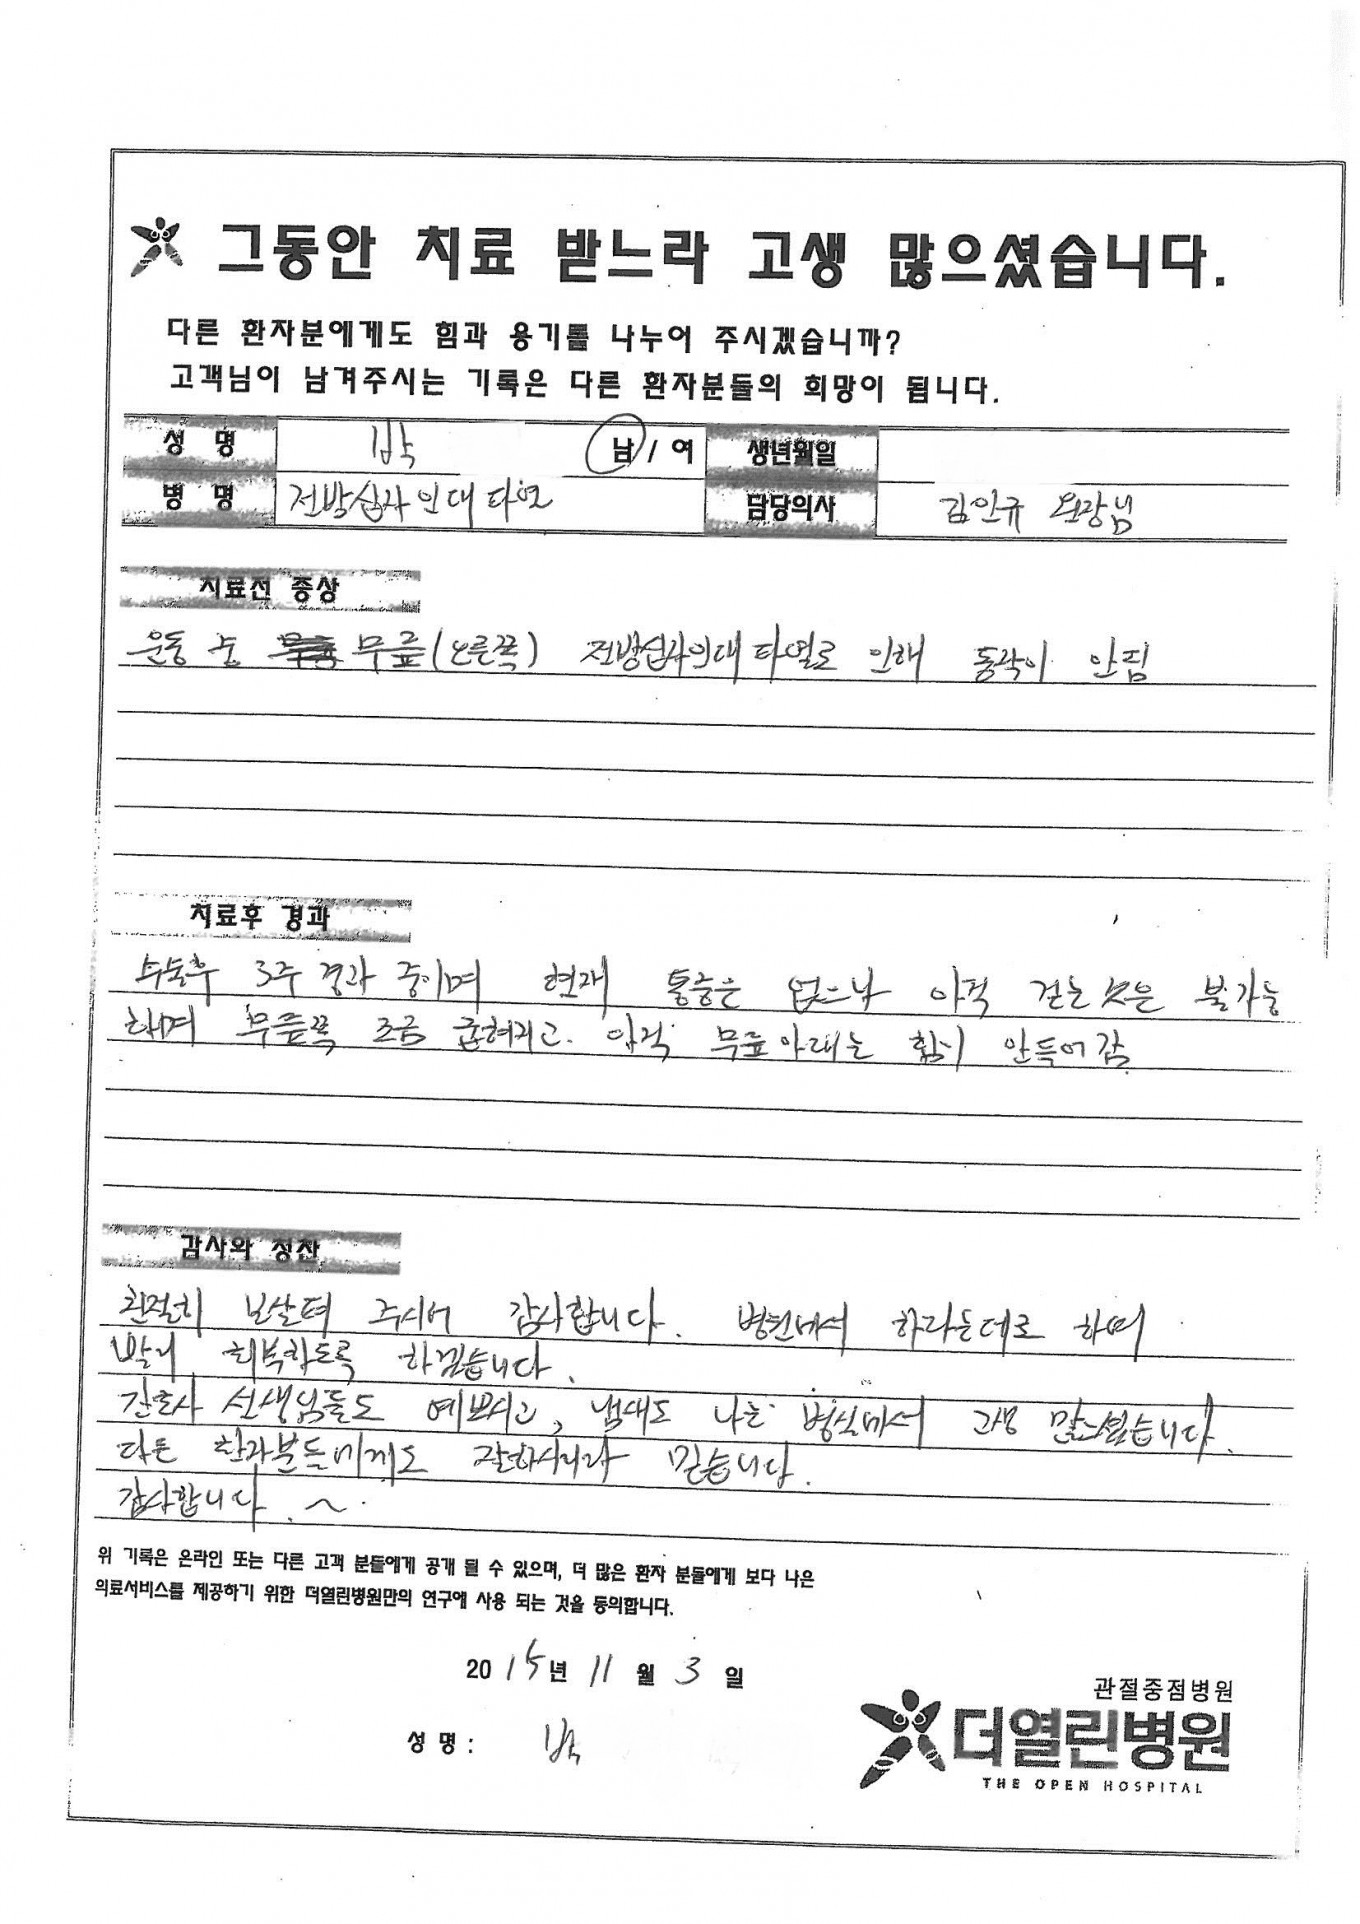 그동안 치료 받느라 고생 많으셨습니다.
다른 환자분에게도 힘과 용기를 나누어 주시겠습니까?
고객님이 남겨주시는 기록은 다른 환자분들의 희망이 됩니다.
성 명 박 남 / 여 생년월일
병 명 전방십자인대 파열 담당의사 김인규 원장님
치료전 증상
운동 중 무릎(오른쪽) 전방십자인대 파열로 인해 동작이 안됨
치료후 경과
수술후 3주 경과 중이며 현재 통증은 없으나 아직 걷는 것은 불가능
하며 무릎쪽 조금 굽혀지고. 아직 무릎아래는 힘이 안들어감.
감사와 칭찬
친절히 보살펴 주시어 감사합니다. 병원에서 하라는데로 하여
빨리 회복하도록 하겠습니다.
간호사 선생님들도 예쁘시고, 냄새도 나는 병실에서 고생 많으셨습니다.
다른 환자분들에게도 잘하시리라 믿습니다.
감사합니다. ~
위 기록은 온라인 또는 다른 고객 분들에게 공개 될 수 있으며, 더 많은 환자 분들에게 보다 나은
의료서비스를 제공하기 위한 더열린병원만의 연구에 사용 되는 것을 동의합니다.
2015년 11월 3일
성 명 : 박
관절중점병원
더열린병원
THE OPEN HOSPITAL